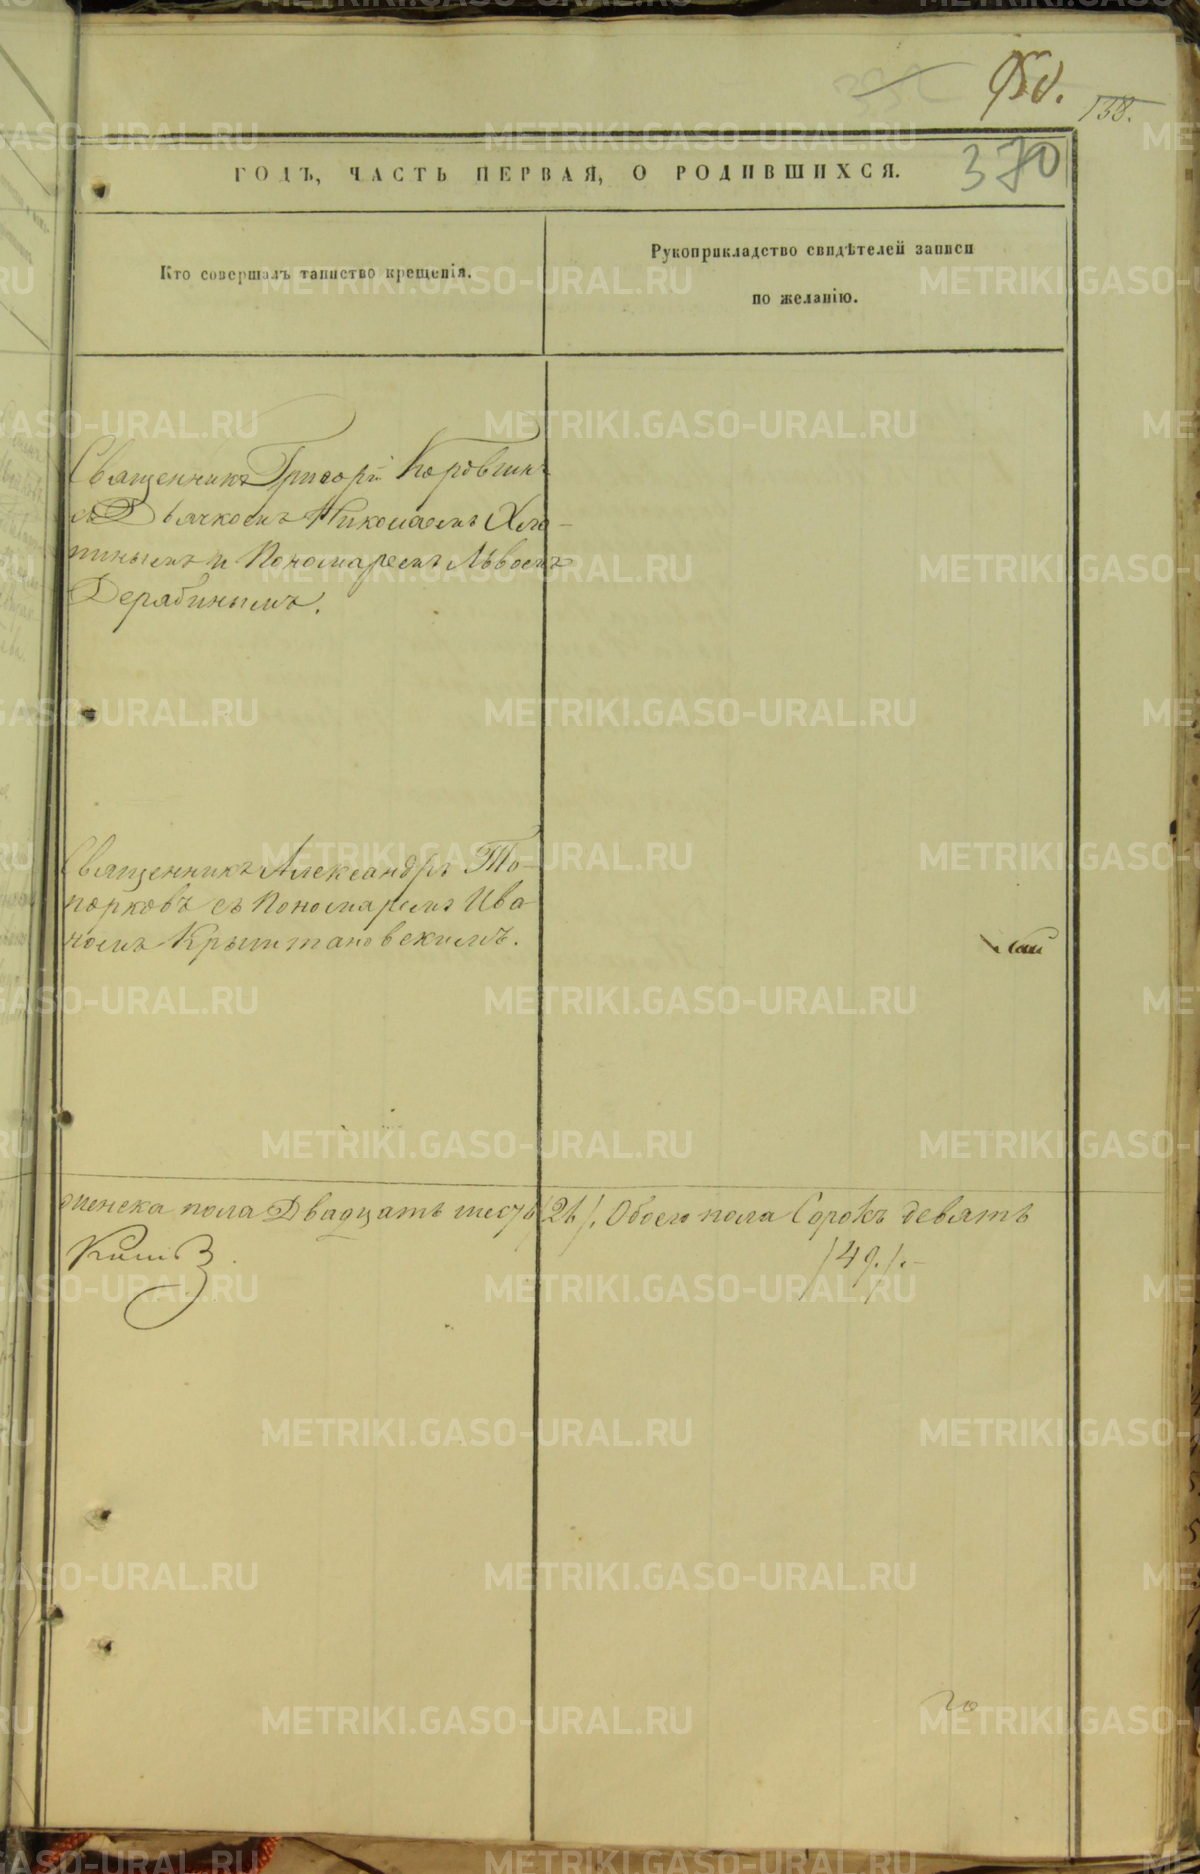 950.
138.
370
ГОДЪ, ЧАСТЬ ПЕРВАЯ, О РОДИВШИХСЯ.
Кто совершалъ таинство крещенія.
Рукоприкладство свидѣтелей записи
по желанію.
Священникъ Григорій Коровинъ
съ Дьячкомъ Николаемъ Хла-
пинымъ и Пономаремъ Львомъ
Дерябинымъ.
Священникъ Александръ То-
порковъ съ Пономаремъ Ива
номъ Крыштановскимъ.
женска пола Двадцать шесть /26/. Обоего пола Сорокъ девять
/49./.-
METRIKI.GASO-URAL.RU